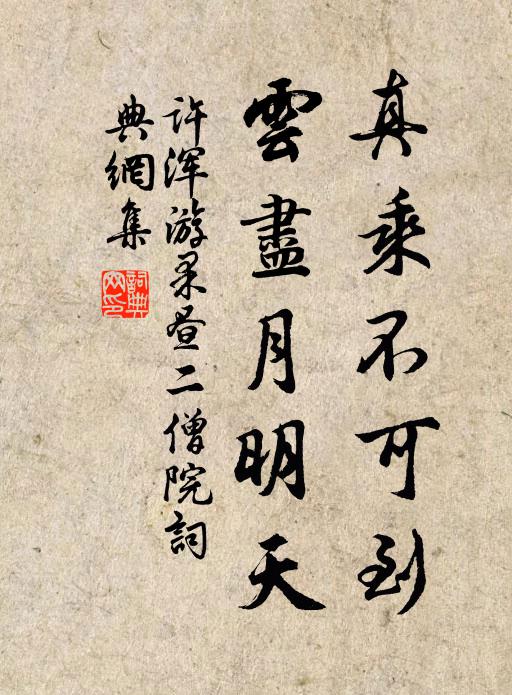 真乘不可到
雲盡月明天
許渾游果晝二僧院詞
典網集
詞典網印